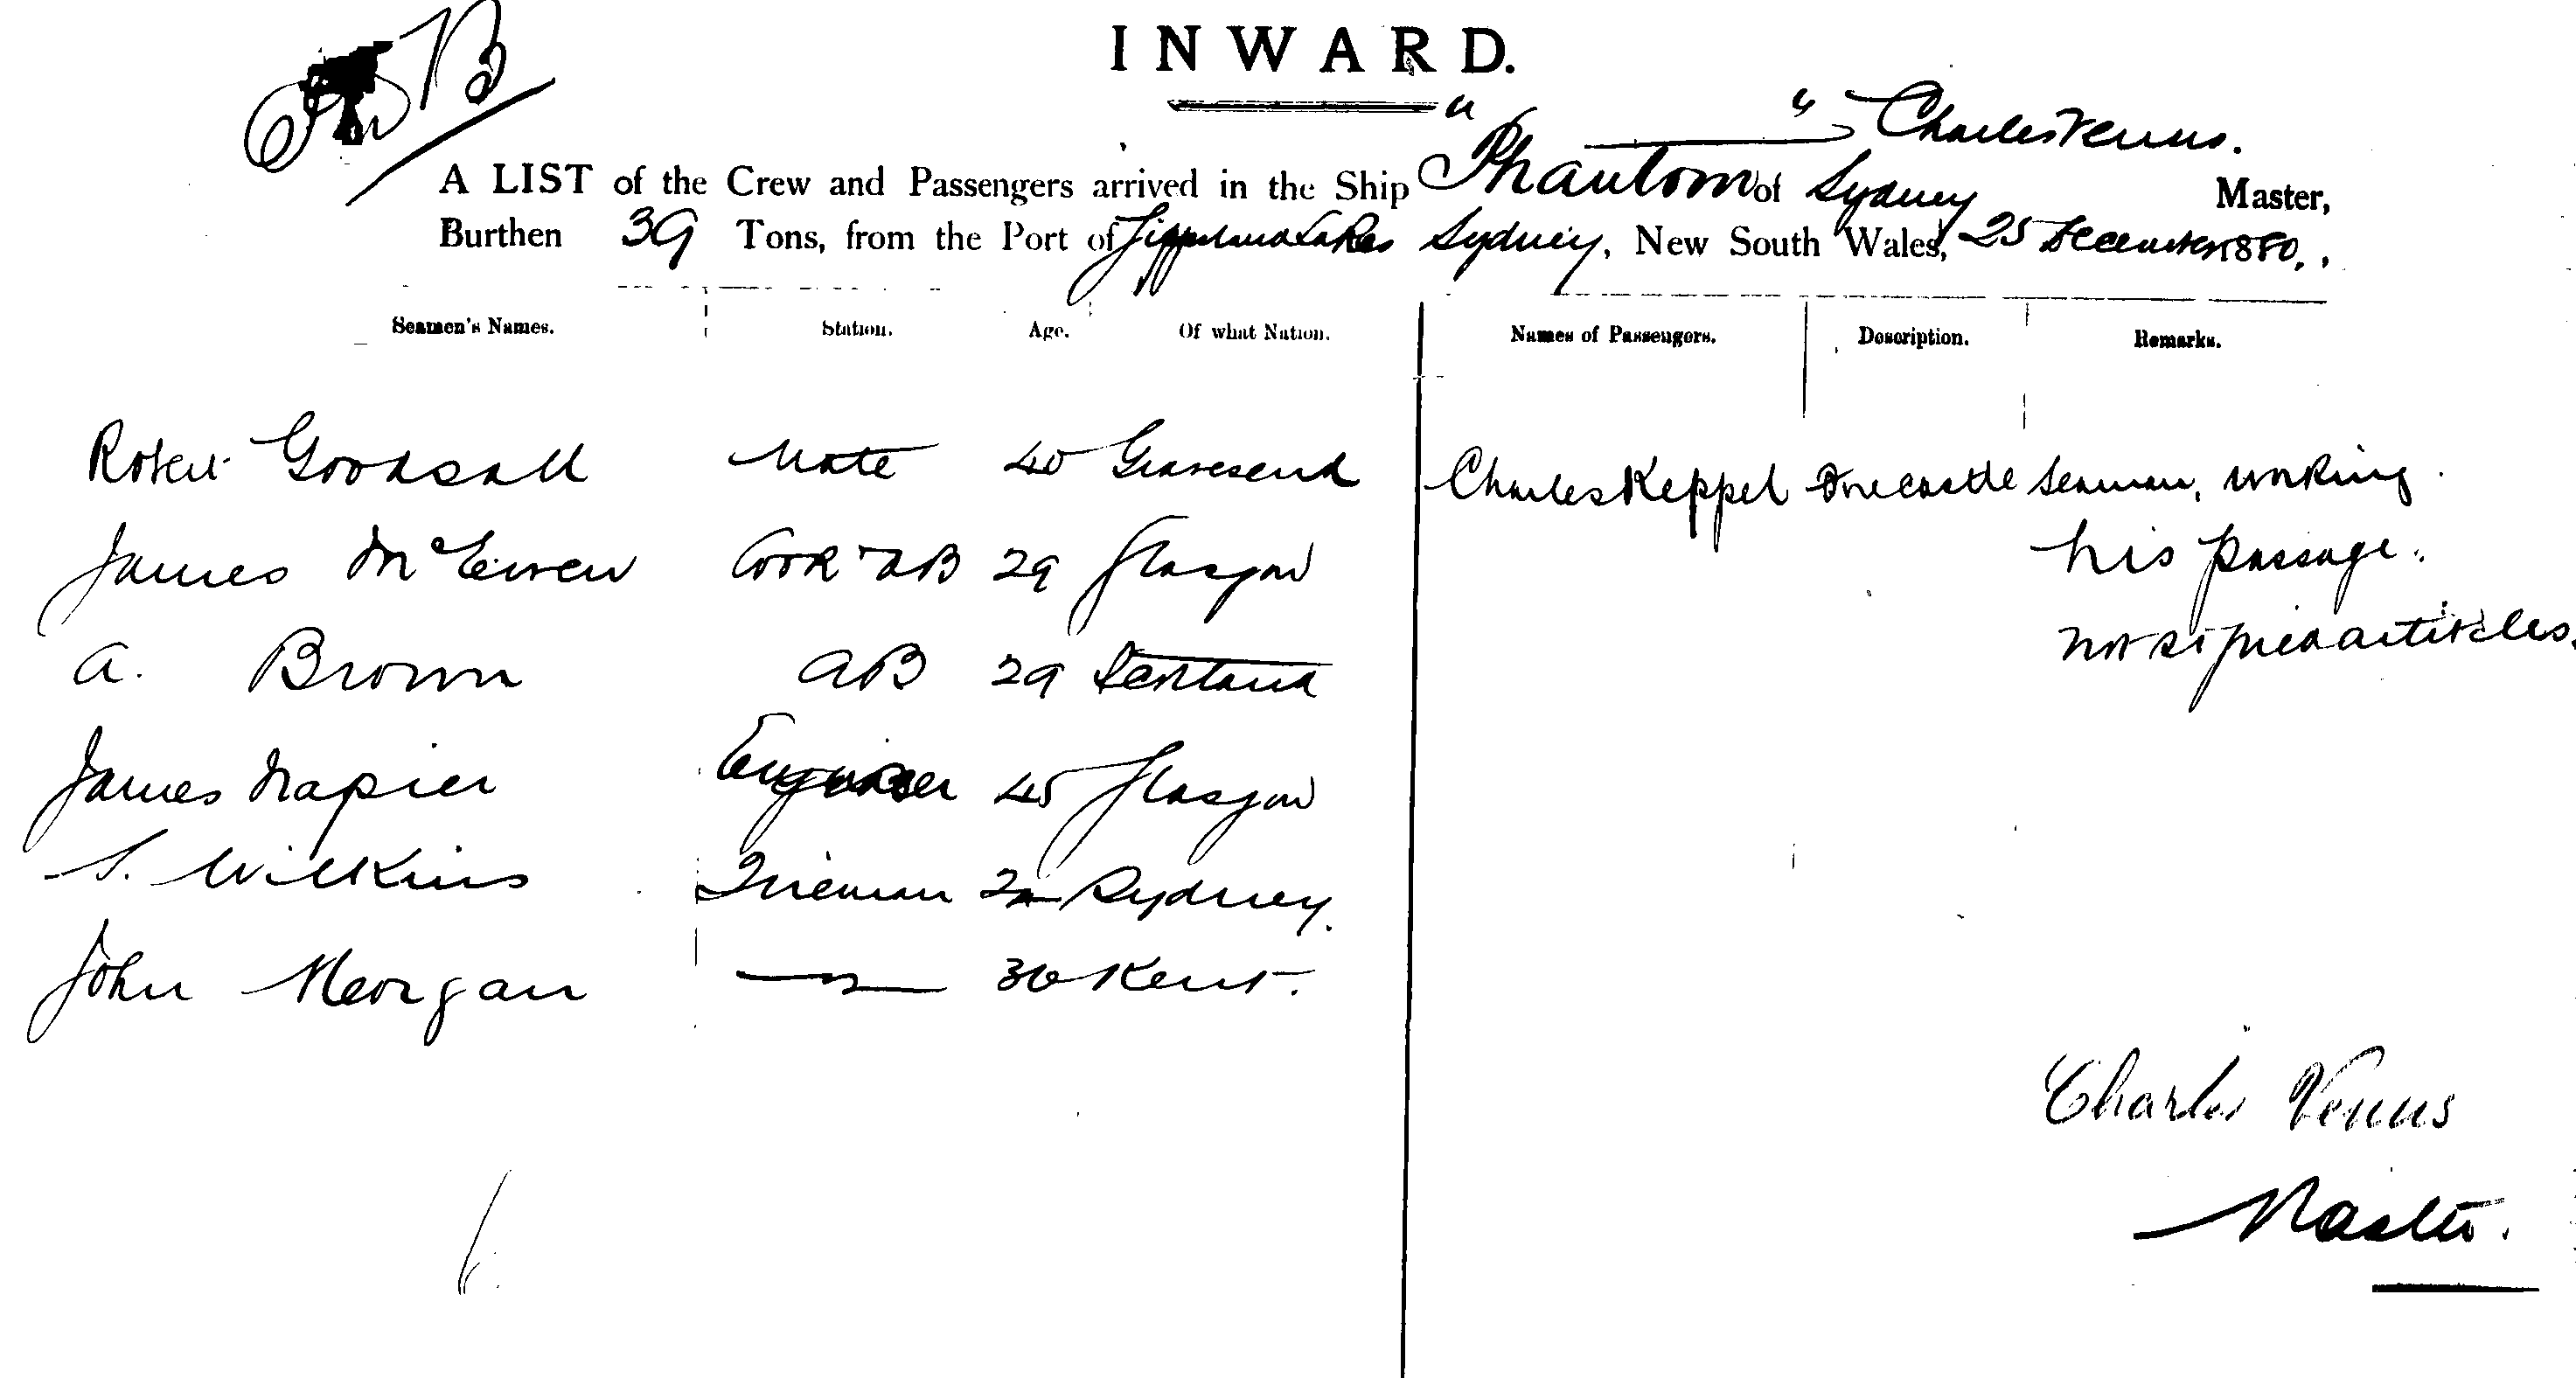 INWARD.
"Phantom" Charles Venus.
A LIST of the Crew and Passengers arrived in the Ship Phantom of Sydney Master,
Burthen 39 Tons, from the Port of Gippsland Lakes Sydney, New South Wales, 25 December 1880.
Seamen's Names. Station. Age. Of what Nation. Names of Passengers. Description. Remarks.
Robert Goodsall Mate 40 Gravesend Charles Keppel Forecastle Seaman, working
James McEwen Cook & AB 29 Glasgow his passage.
A. Brown AB 29 Scotland not signed articles.
James Napier Engineer 45 Glasgow
S. Wilkins Fireman Sydney.
John Morgan 36 Kent.
Charles Venus
Master.